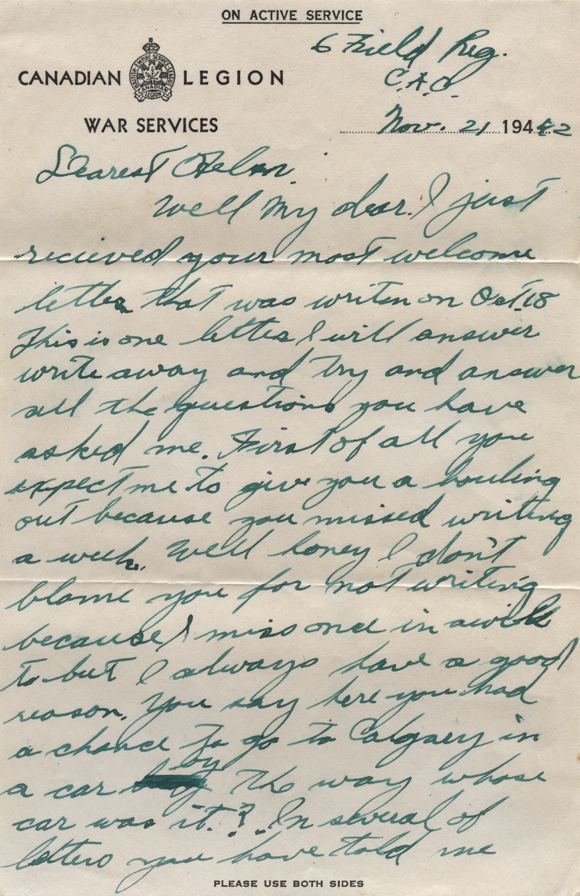 ON ACTIVE SERVICE
6 Field Reg.
CANADIAN LEGION
C.A.O.
WAR SERVICES
Nov. 21 1942
Dearest Helen.
Well my dear. I just
recieved your most welcome
letter that was writen on Oct. 18
This is one letter I will answer
write away and try and answer
all the questions you have
asked me. First of all you
expect me to give you a bouling
out because you missed writing
a week. Well honey I don't
blame you for not writing
because I miss once in awile
to but I always have a good
reason. You say here you had
a chance to go to Calgary in
a car by the way whose
car was it.? In several of
letters you have told me
PLEASE USE BOTH SIDES